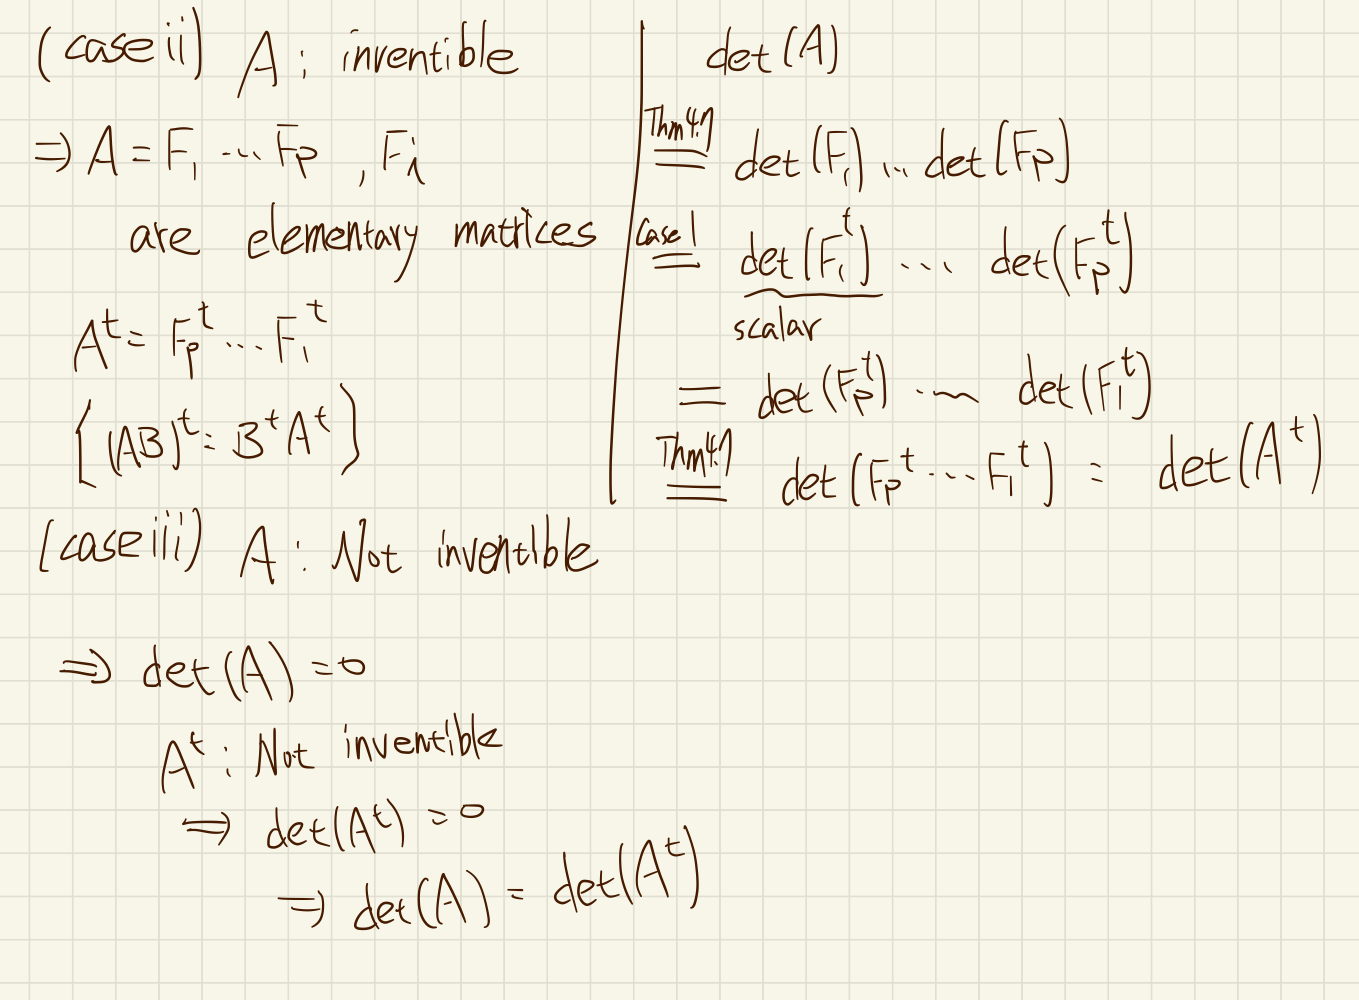 (case ii) A : inventible
⇒ A = F₁ ... Fp , Fi
are elementary matrices
Aᵗ = Fpᵗ ... F₁ᵗ
[(AB)ᵗ = BᵗAᵗ)
det(A)
Thm4.7
= det(F₁) ... det(Fp)
Case 1
= det(F₁ᵗ) ... det(Fpᵗ)
scalar
= det(Fpᵗ) ... det(F₁ᵗ)
Thm4.7
= det(Fpᵗ ... F₁ᵗ) = det(Aᵗ)
(case iii) A : Not inventible
⇒ det(A) = 0
Aᵗ : Not inventible
⇒ det(Aᵗ) = 0
⇒ det(A) = det(Aᵗ)